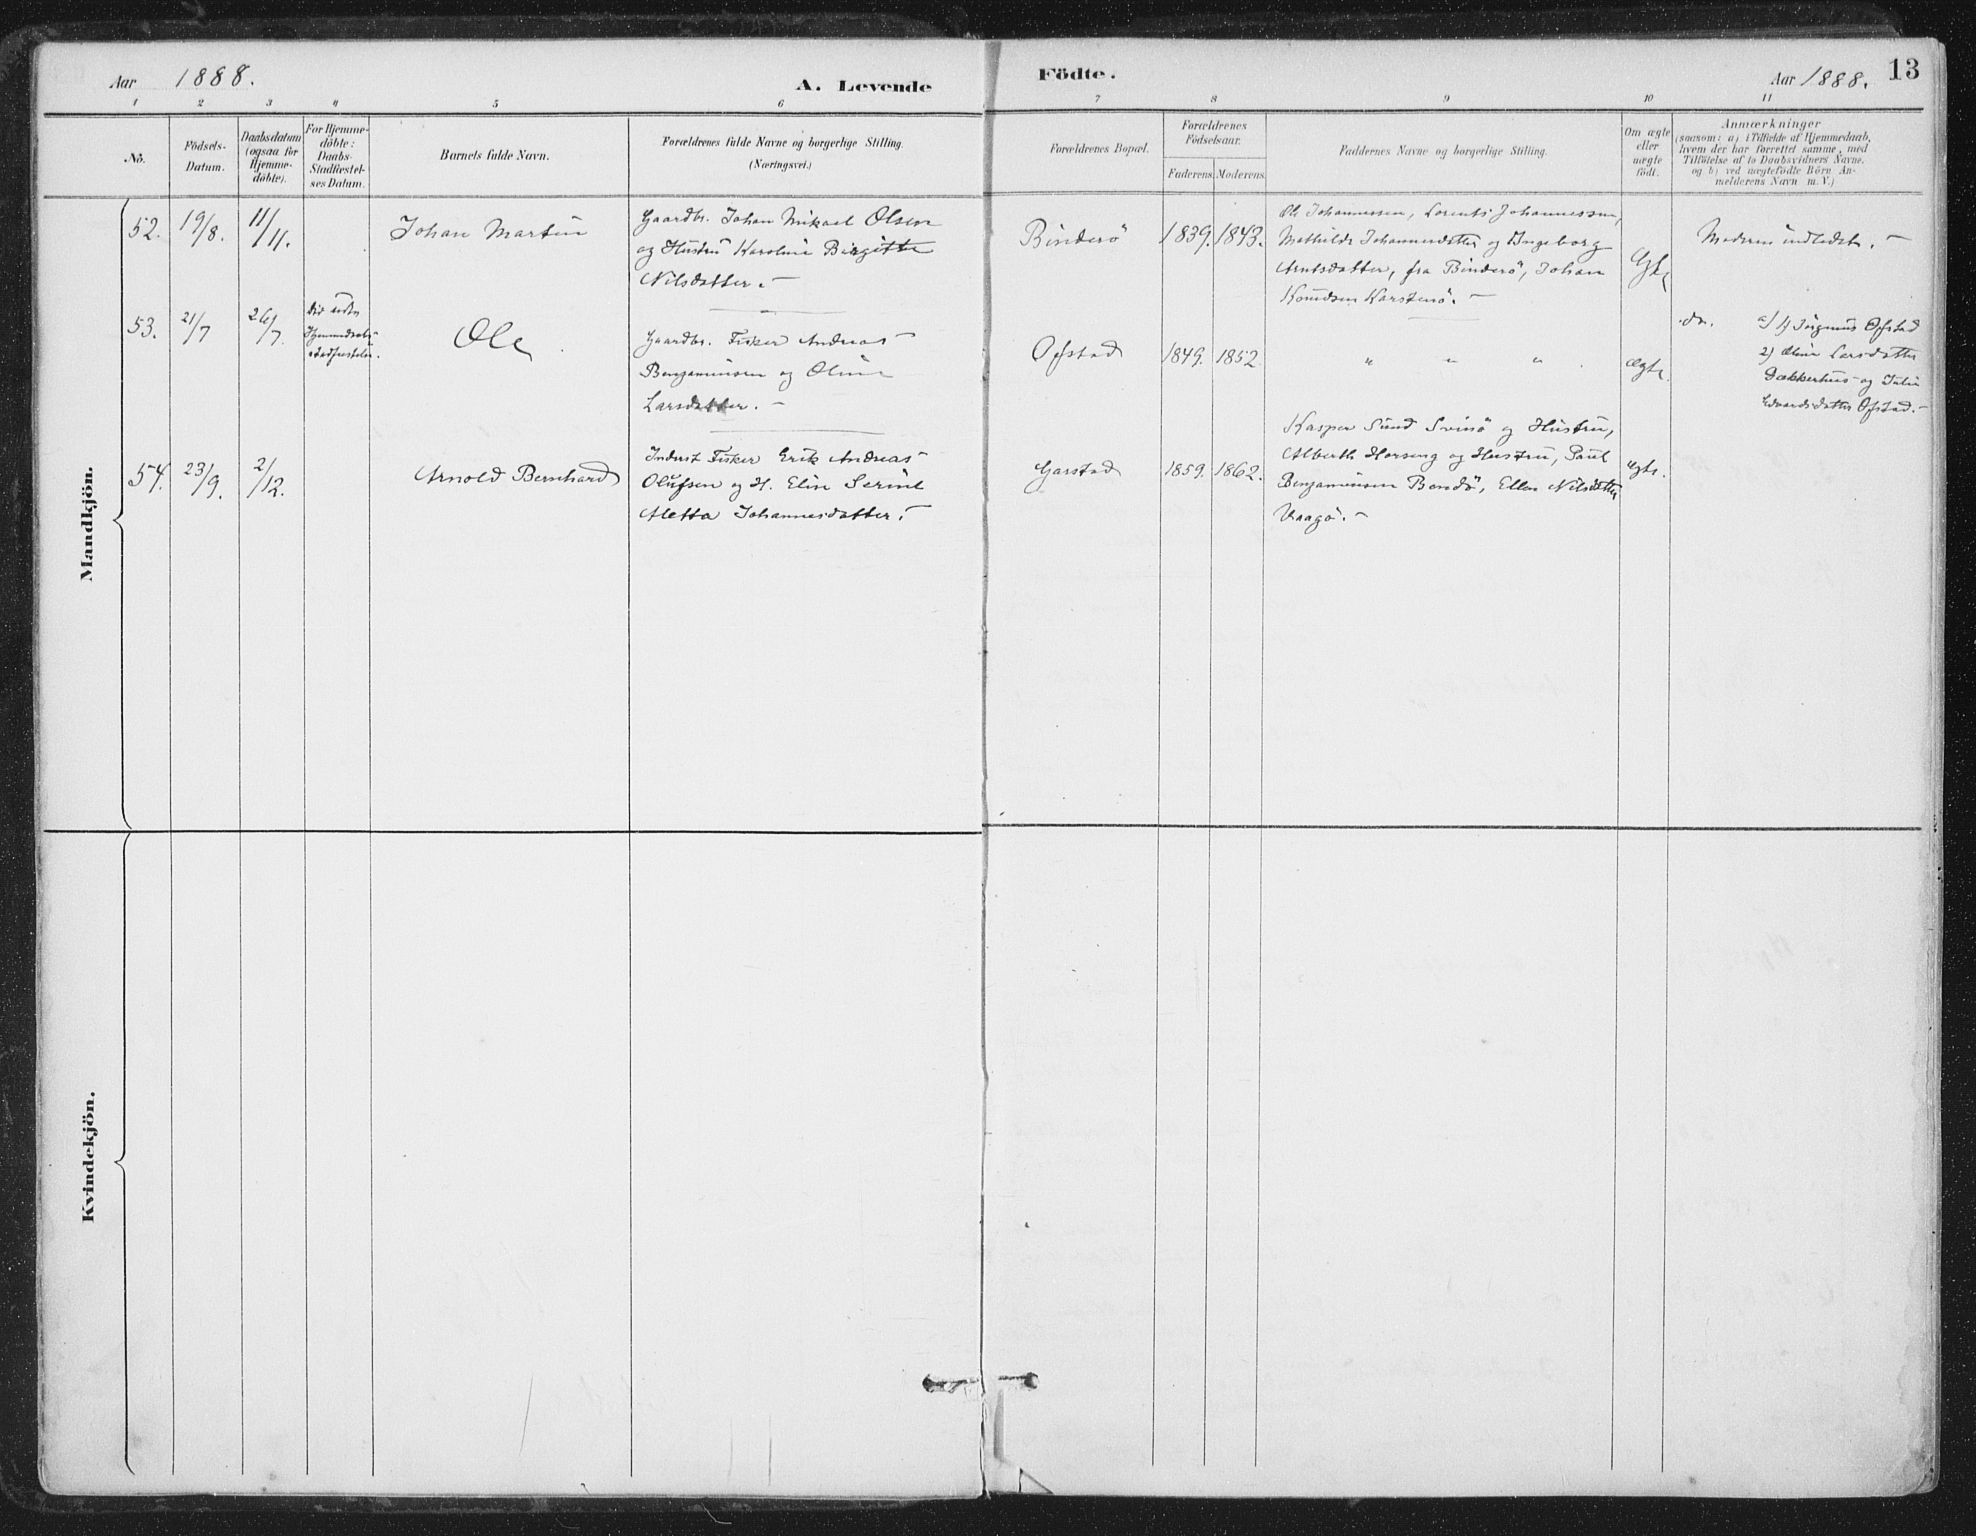 Aar 1888.
A. Levende
Födte.
Aar 1888.
13
1 2 3 4 5 6 7 8 9 10 11
No.
Födsels-
Datum.
Daabsdatum
(ogsaa for
Hjemme-
döbte).
For Hjemme-
döbte:
Daabs-
Stadfæstel-
ses Datum.
Barnets fulde Navn.
Forældrenes fulde Navne og borgerlige Stilling.
(Næringsvei.)
Forældrenes Bopæl.
Forældrenes
Födselsaar.
Faderens. Moderens.
Faddernes Navne og borgerlige Stilling.
Om ægte
eller
uægte
födt.
Anmærkninger
(saasom: a) i Tilfælde af Hjemmedaab,
hvem der har forrettet samme, med
Tilföielse af to Daabsvidners Navne,
og b) ved uægtefödte Börn An-
melderens Navn m. V.)
Mandkjön.
52. 19/8. 11/11. Johan Martin
Gaardbr. Johan Mikael Olsen
og Hustru Karoline Birgitte
Nilsdatter. –
Binderö 1839. 1843.
Ole Johannessen, Lorents Johannessen,
Mathilde Johannesdatter og Ingeborg
Arntsdatter, fra Binderö, Johan
Knudsen Karstenö. –
Ægte
Moderen indledet. –
53. 21/7 26/7.
Död uden
Ole
Gaardbr. Fisker Andreas
Benjaminsen og Oline
Larsdatter. –
Ofstad 1849. 1852.
" " "
Ægte.
do. a/ 1) Jörginus Ofstad
2) Oline Larsdatter
Dækkerhus og Julie
Edvardsdatter Ofstad. –
54. 23/9. 2/12. Arnold Bernhard
Inderst Fisker Erik Andreas
Olufsen og H. Elise Serine
Aletta Johannesdatter. –
Garstad 1859. 1862.
Kasper Sund Svinö og Hustru,
Alberth Horseng og Hustru, Paul
Benjaminsen Bondö, Ellen Nilsdatter
Vaagö. –
Ægte.
Kvindekjön.